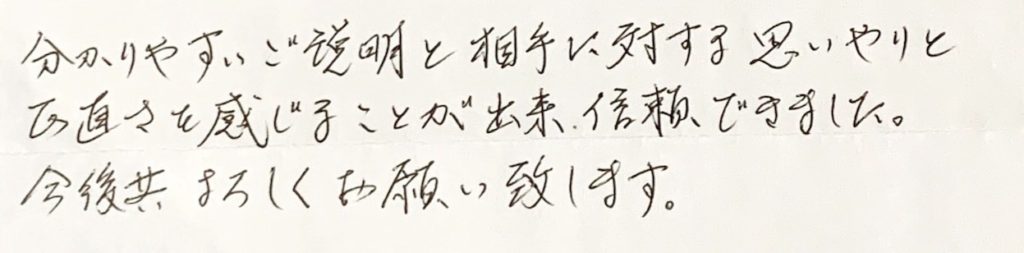 分かりやすいご説明と相手に対する思いやりと
正直さを感じることが出来、信頼できました。
今後共よろしくお願い致します。